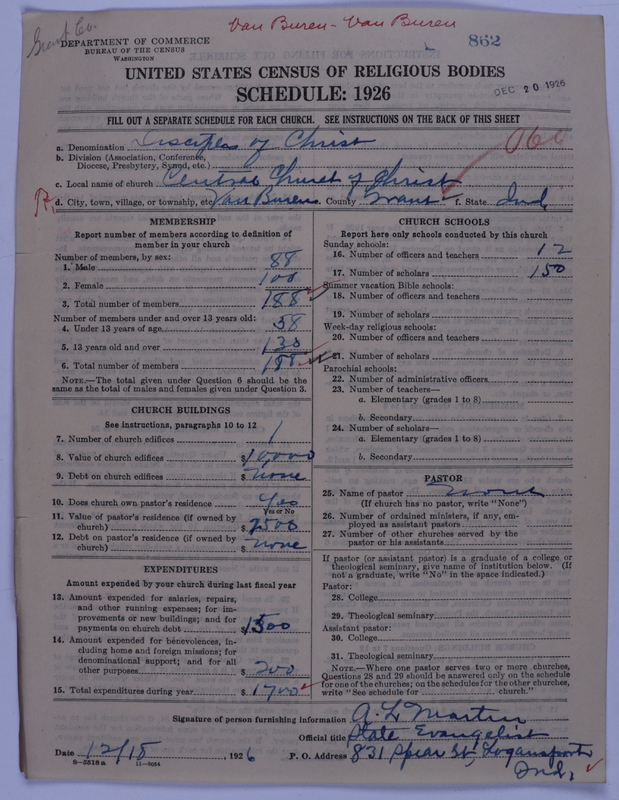 Grant Co.
Van Buren - Van Buren
862
DEPARTMENT OF COMMERCE
BUREAU OF THE CENSUS
WASHINGTON
UNITED STATES CENSUS OF RELIGIOUS BODIES
SCHEDULE: 1926
DEC 20 1926
FILL OUT A SEPARATE SCHEDULE FOR EACH CHURCH. SEE INSTRUCTIONS ON THE BACK OF THIS SHEET
060
a. Denomination Disciples of Christ
b. Division (Association, Conference, Diocese, Presbytery, Synod, etc.)
c. Local name of church Central Church of Christ
R,
d. City, town, village, or township, etc. Van Buren County Grant f. State Ind.
MEMBERSHIP
Report number of members according to definition of member in your church
Number of members, by sex:
1. Male 88
2. Female 100
3. Total number of members 188
Number of members under and over 13 years old:
4. Under 13 years of age 58
5. 13 years old and over 130
6. Total number of members 188
NOTE.—The total given under Question 6 should be the same as the total of males and females given under Question 3.
CHURCH BUILDINGS
See instructions, paragraphs 10 to 12
7. Number of church edifices 1
8. Value of church edifices $10,000
9. Debt on church edifices $ None
10. Does church own pastor's residence Yes
Yes or No
11. Value of pastor's residence (if owned by church) $2500
12. Debt on pastor's residence (if owned by church) $ None
EXPENDITURES
Amount expended by your church during last fiscal year
13. Amount expended for salaries, repairs, and other running expenses; for improvements or new buildings; and for payments on church debt $1500
14. Amount expended for benevolences, including home and foreign missions; for denominational support; and for all other purposes $ 200
15. Total expenditures during year $ 1700
CHURCH SCHOOLS
Report here only schools conducted by this church
Sunday schools:
16. Number of officers and teachers 12
17. Number of scholars 150
Summer vacation Bible schools:
18. Number of officers and teachers
19. Number of scholars
Week-day religious schools:
20. Number of officers and teachers
21. Number of scholars
Parochial schools:
22. Number of administrative officers
23. Number of teachers—
a. Elementary (grades 1 to 8)
b. Secondary
24. Number of scholars—
a. Elementary (grades 1 to 8)
b. Secondary
PASTOR
25. Name of pastor None
(If church has no pastor, write "None")
26. Number of ordained ministers, if any, employed as assistant pastors
27. Number of other churches served by the pastor or his assistants
If pastor (or assistant pastor) is a graduate of a college or theological seminary, give name of institution below. (If not a graduate, write "No" in the space indicated.)
Pastor:
28. College
29. Theological seminary
Assistant pastor:
30. College
31. Theological seminary
NOTE.—Where one pastor serves two or more churches, Questions 28 and 29 should be answered only on the schedule for one of the churches; on the schedules for the other churches, write "See schedule for church."
Signature of person furnishing information A. L. Martin
Official title State Evangelist
Date 12/15, 1926 P. O. Address 831 Spear St., Logansport
Ind.
8-5518 a 11-9054